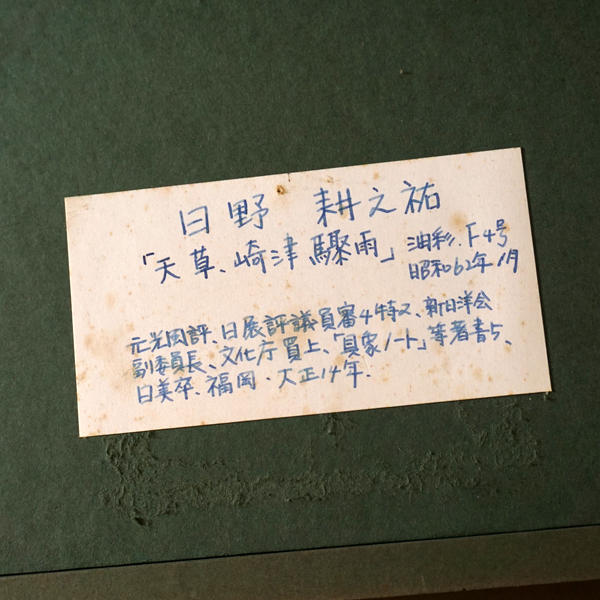 日野 耕之祐
「天草、崎津驟雨」油彩.F4号
昭和62年1月
元光風評、日展評議員審4特2、新日洋会
副委員長、文化庁買上、「具象ノート」等著書5、
日美卒、福岡、大正14年.